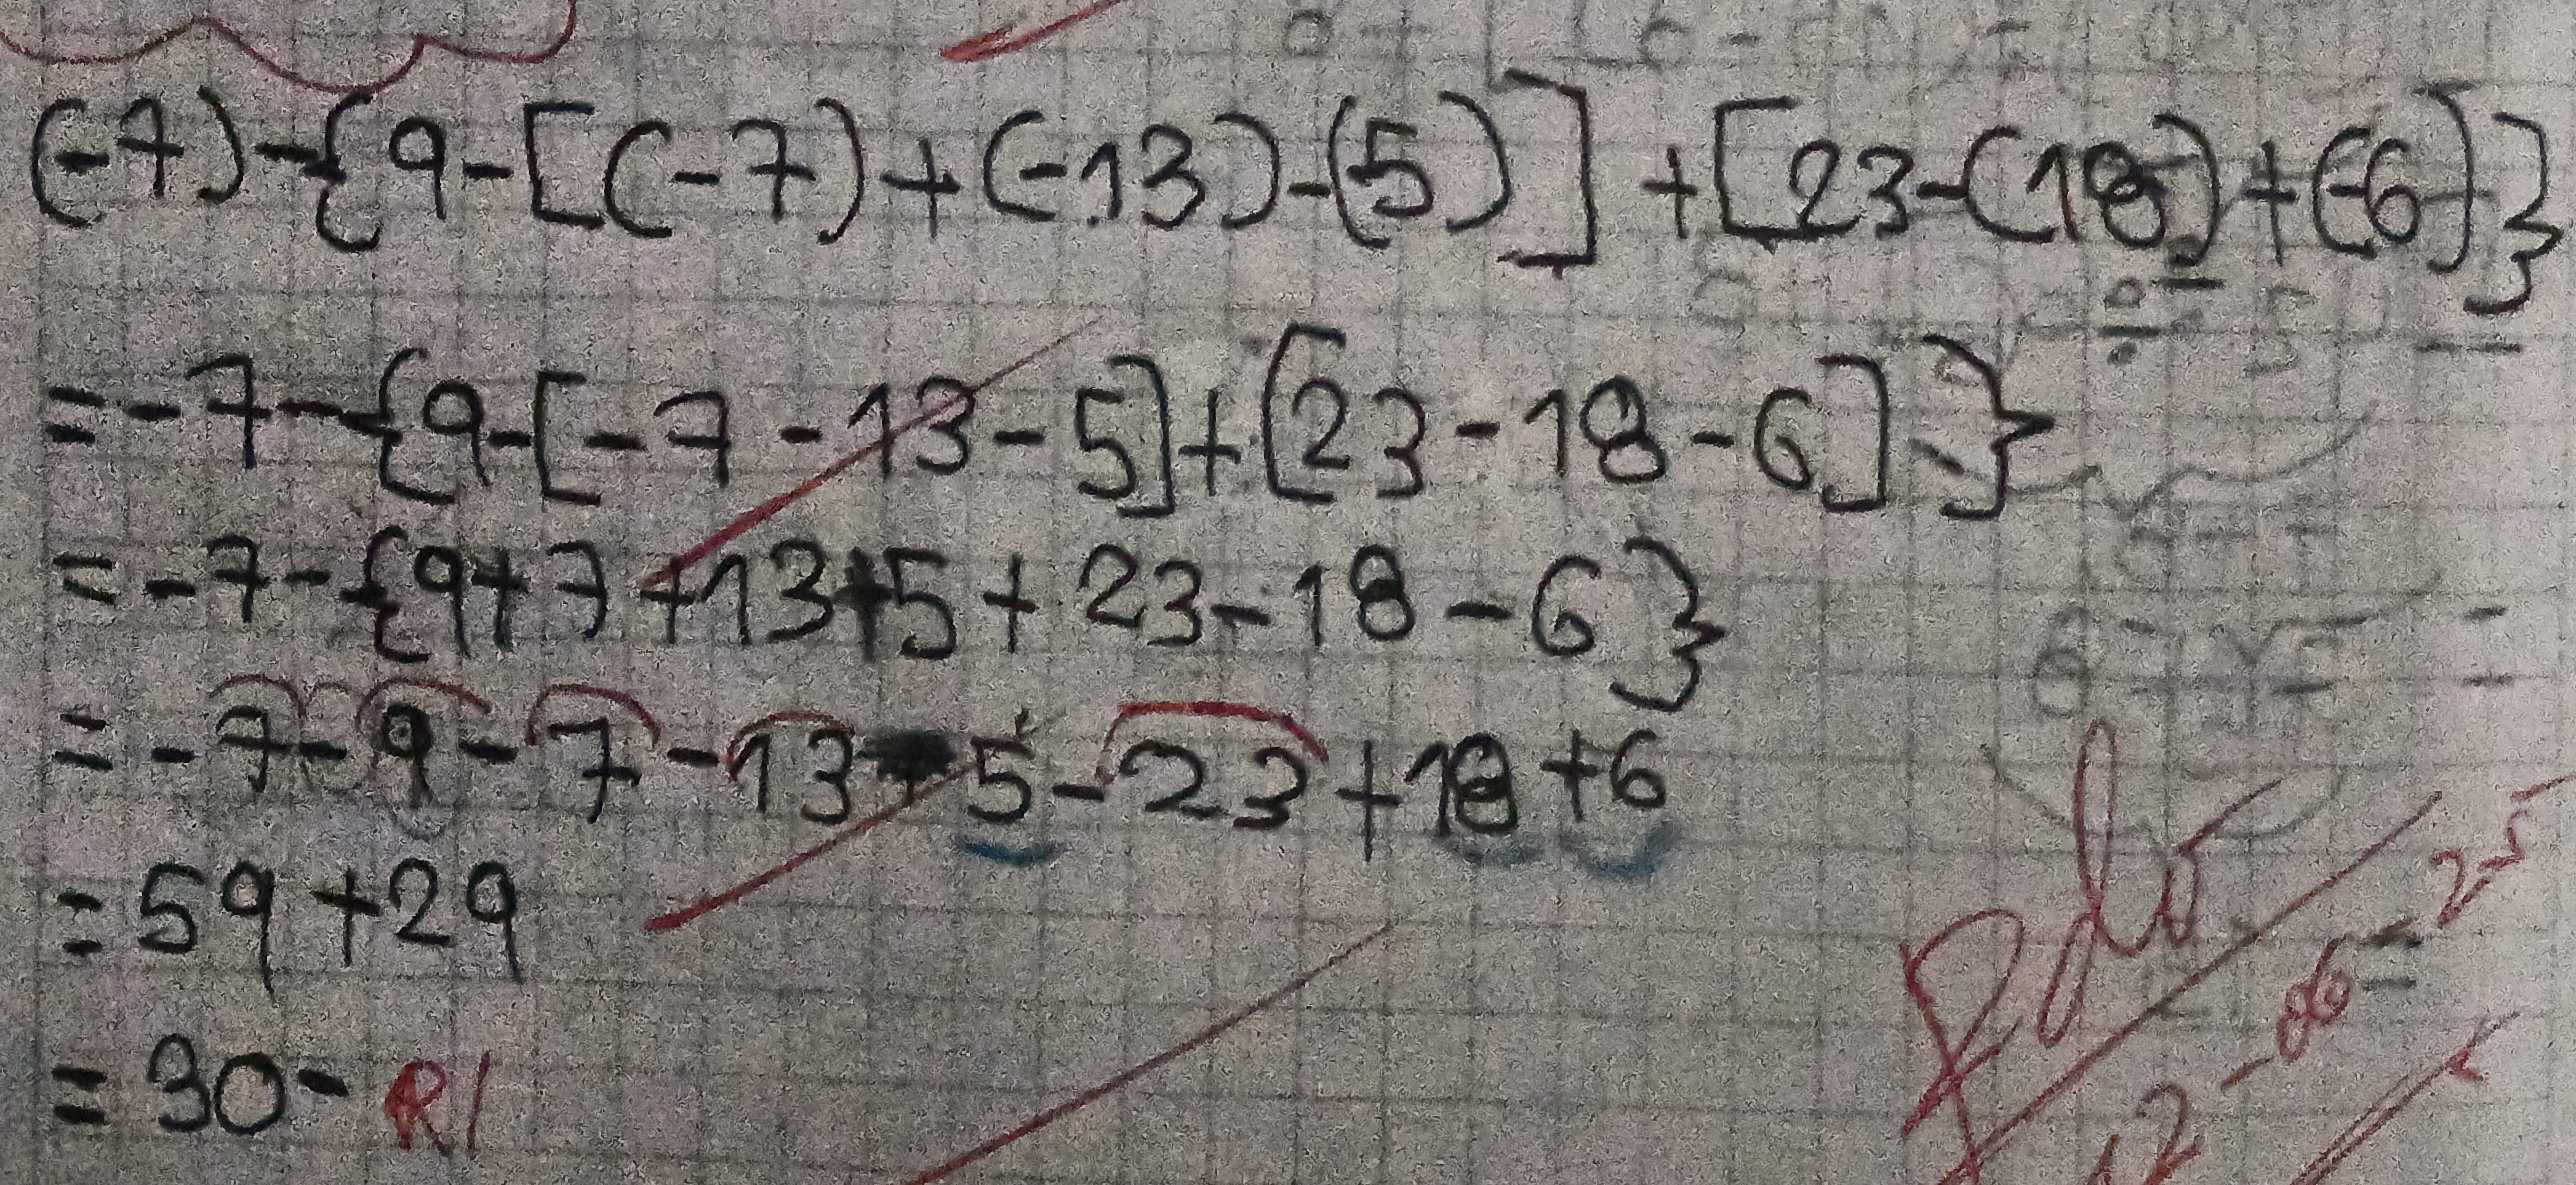 (-7)-{9-[(-7)+(-13)-(5)]+[23-(18)+(-6)]}
=-7-{9-[-7-13-5]+[23-18-6]-}
=-7-{9+7+13+5+23-18-6}
=-7-9-7-13-5-23+18+6
=59+29
=30- R/
12-06-25